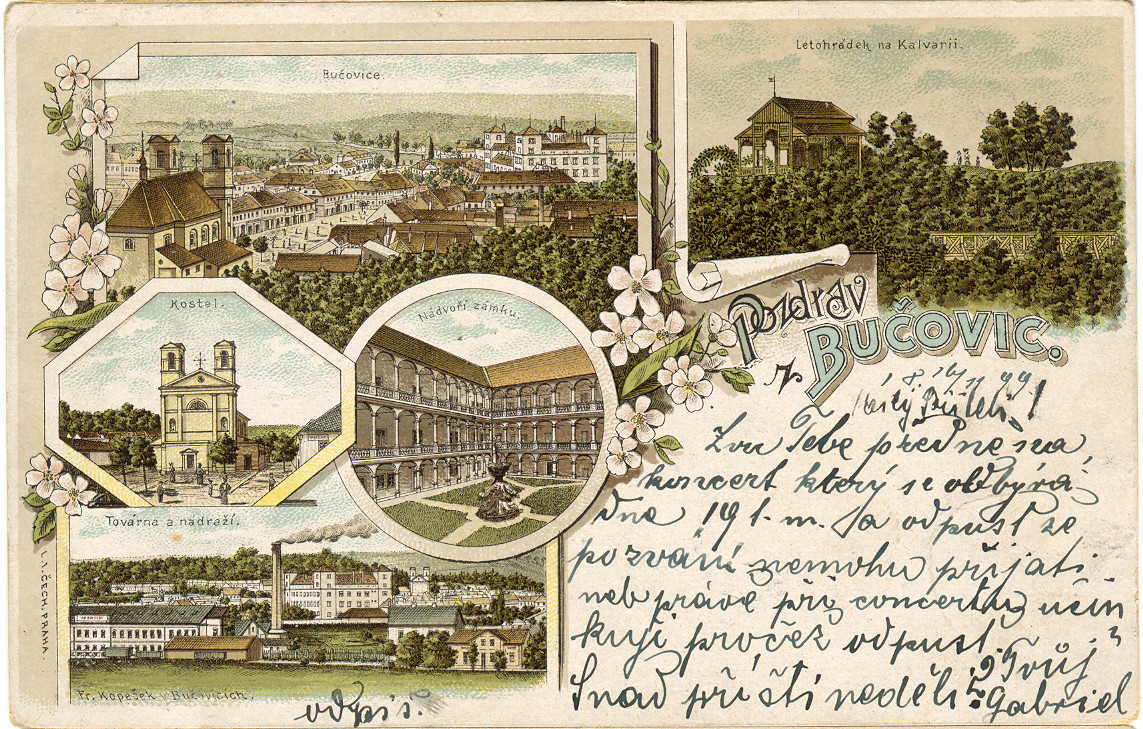 Bučovice.
Letohrádek na Kalvarii.
Kostel.
Nádvoří zámku.
Pozdrav
z Bučovic.
Továrna a nádraží.
L. &. ČECH, PRAHA.
Fr. Kopešek v Bučovicích.
Milý Příteli!
Zvu Tebe předne na
koncert který se odbývá
dne 19 t. m. a odpusť že
pozvání nemohu přijati
neb právě při concertu účin
kuji pročež odpusť.
Snad příští neděli? Tvůj
Gabriel
odpiš.